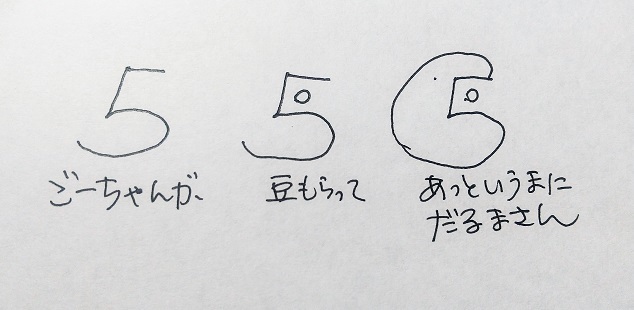 5 5
ごーちゃんが、
豆もらって
あっというまに
だるまさん